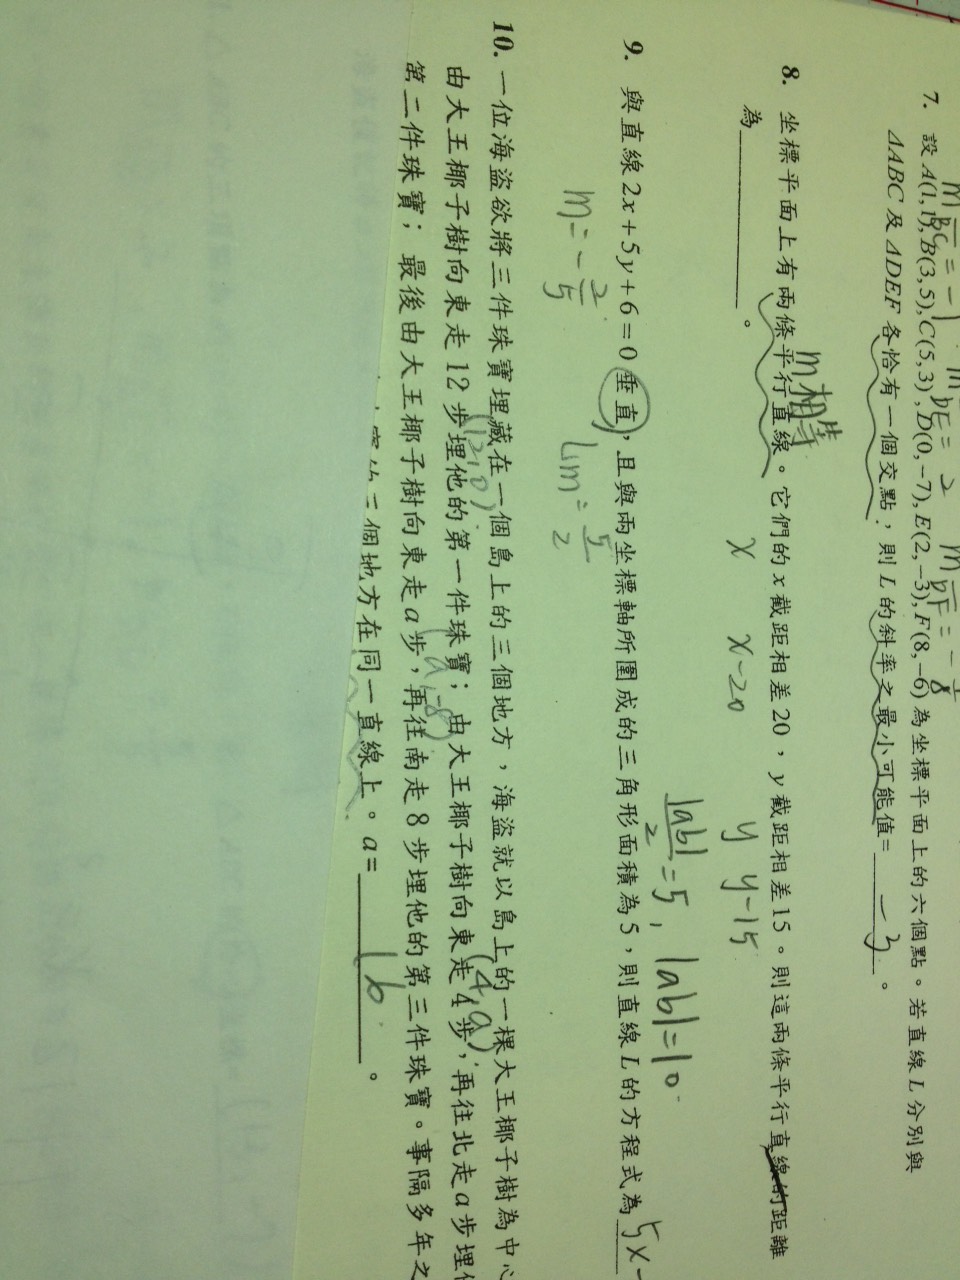 7. 設A(1,1),B(3,5),C(5,3),D(0,-7),E(2,-3),F(8,-6)為坐標平面上的六個點。若直線L分別與
ΔABC及ΔDEF各恰有一個交點,則L的斜率之最小可能值=-3。
m相等
8. 坐標平面上有兩條平行直線。它們的x截距相差20,y截距相差15。則這兩條平行直線的距離
為。
x x-20 y y-15
|ab|/2=5, |ab|=10
9. 與直線2x+5y+6=0垂直,且與兩坐標軸所圍成的三角形面積為5,則直線L的方程式為5x-
m=-2/5 Lm=5/2
10. 一位海盜欲將三件珠寶埋藏在一個島上的三個地方,海盜就以島上的一棵大王椰子樹為中心
(12,0) (4,a)
由大王椰子樹向東走12步埋他的第一件珠寶;由大王椰子樹向東走4步,再往北走a步埋
(a,-8)
第二件珠寶;最後由大王椰子樹向東走a步,再往南走8步埋他的第三件珠寶。事隔多年之
個地方在同一直線上。a=16。